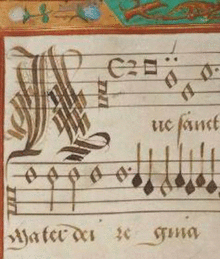 A
ue sanct
Mater dei re gina